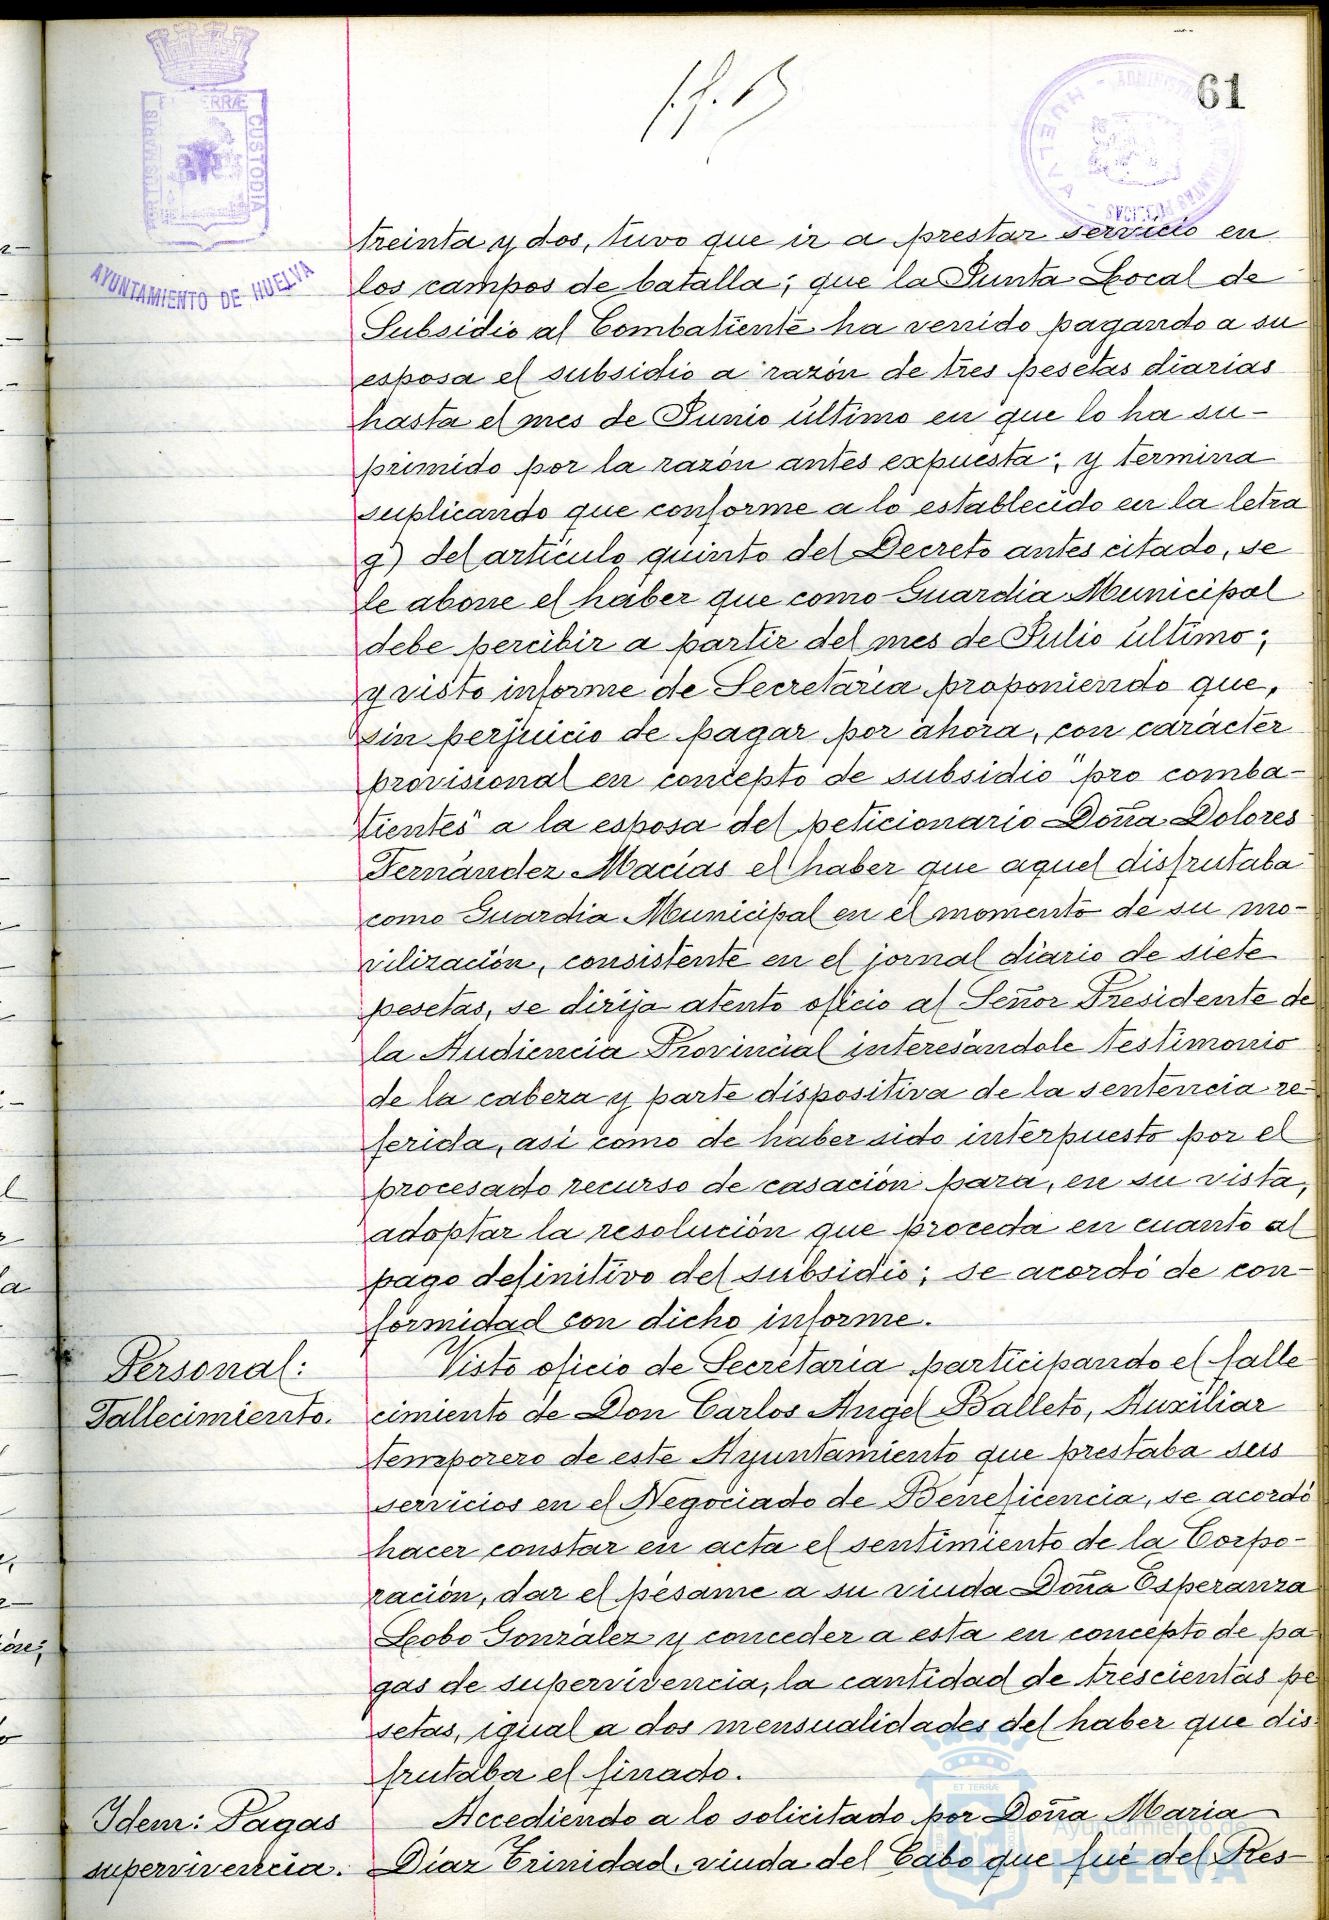 61
PORTUS MARIS
ET TERRÆ
CUSTODIA
AYUNTAMIENTO DE HUELVA
HUELVA
treinta y dos, tuvo que ir a prestar servicio en
los campos de batalla; que la Junta Local de
Subsidio al Combatiente ha venido pagando a su
esposa el subsidio a razón de tres pesetas diarias
hasta el mes de Junio último en que lo ha su-
primido por la razón antes expuesta; y termina
suplicando que conforme a lo establecido en la letra
g) del artículo quinto del Decreto antes citado, se
le abone el haber que como Guardia Municipal
debe percibir a partir del mes de Julio último;
y visto informe de Secretaría proponiendo que,
sin perjuicio de pagar por ahora, con carácter
provisional en concepto de subsidio "pro comba-
tientes" a la esposa del peticionario Doña Dolores
Fernández Macías el haber que aquel disfrutaba
como Guardia Municipal en el momento de su mo-
vilización, consistente en el jornal diario de siete
pesetas, se dirija atento oficio al Señor Presidente de
la Audiencia Provincial interesándole testimonio
de la cabeza y parte dispositiva de la sentencia re-
ferida, así como de haber sido interpuesto por el
procesado recurso de casación para, en su vista,
adoptar la resolución que proceda en cuanto al
pago definitivo del subsidio; se acordó de con-
formidad con dicho informe.
Personal:
Fallecimiento.
Visto oficio de Secretaría participando el falle
cimiento de Don Carlos Angel Balleto, Auxiliar
temporero de este Ayuntamiento que prestaba sus
servicios en el Negociado de Beneficencia, se acordó
hacer constar en acta el sentimiento de la Corpo-
ración, dar el pésame a su viuda Doña Esperanza
Lobo González y conceder a esta en concepto de pa
gas de supervivencia, la cantidad de trescientas pe
setas, igual a dos mensualidades del haber que dis
frutaba el finado.
Idem: Pagas
supervivencia.
Accediendo a lo solicitado por Doña Maria
Díaz Trinidad, viuda del Cabo que fué del Res-
ET TERRÆ
Ayuntamiento de
HUELVA